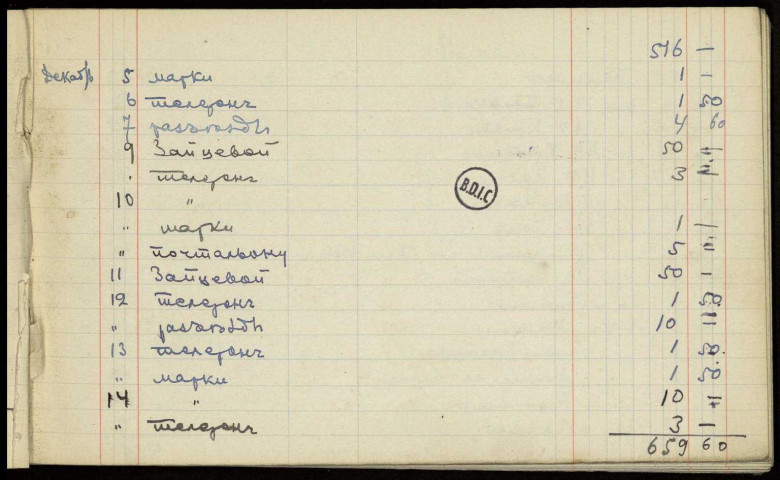 516 —
Декабрь 5 марки 1 —
6 телефонъ 1 50
7 разъѣзды 4 60
9 Зайцевой 50
" телефонъ 3
10 "
" марки 1
" почтальону 5
11 Зайцевой 50 —
12 телефонъ 1 50
" разъѣзды 10
13 телефонъ 1 50
" марки 1 50
14 " 10
" телефонъ 3 —
659 60
B.D.I.C